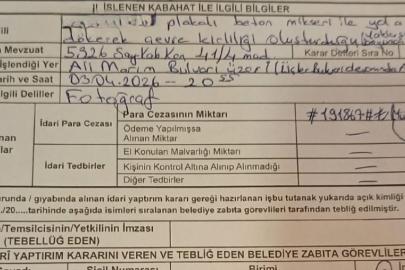 II İŞLENEN KABAHAT İLE İLGİLİ BİLGİLER
plakalı beton mikseri ile yola
dökerek çevre kirliliği oluşturduğu
n Mevzuat 5326 Say Kab Kan 41/4 mad. Karar Defteri Sıra No
İşlendiği Yer Bulvarı üzeri
arih ve Saat 03.04.2026 - 20 55
lgili Deliller Fotoğraf
İdari Para Cezası Para Cezasının Miktarı #191867#
Ödeme Yapılmışsa
Alınan Miktar —
İdari Tedbirler El Konulan Malvarlığı Miktarı —
Kişinin Kontrol Altına Alınıp Alınmadığı —
Diğer Tedbirler —
urunda / gıyabında alınan idari yaptırım kararı gereği hazırlanan işbu tutanak yukarıda açık kimliği
./20.....tarihinde aşağıda isimleri sıralanan belediye zabıta görevlileri tarafından tebliğ edilmiştir.
/Temsilcisinin/Yetkilinin İmzası
(TEBELLÜĞ EDEN)
RÎ YAPTIRIM KARARINI VEREN VE TEBLİĞ EDEN BELEDİYE ZABITA GÖREVLİLER
Sicil Numarası Birimi